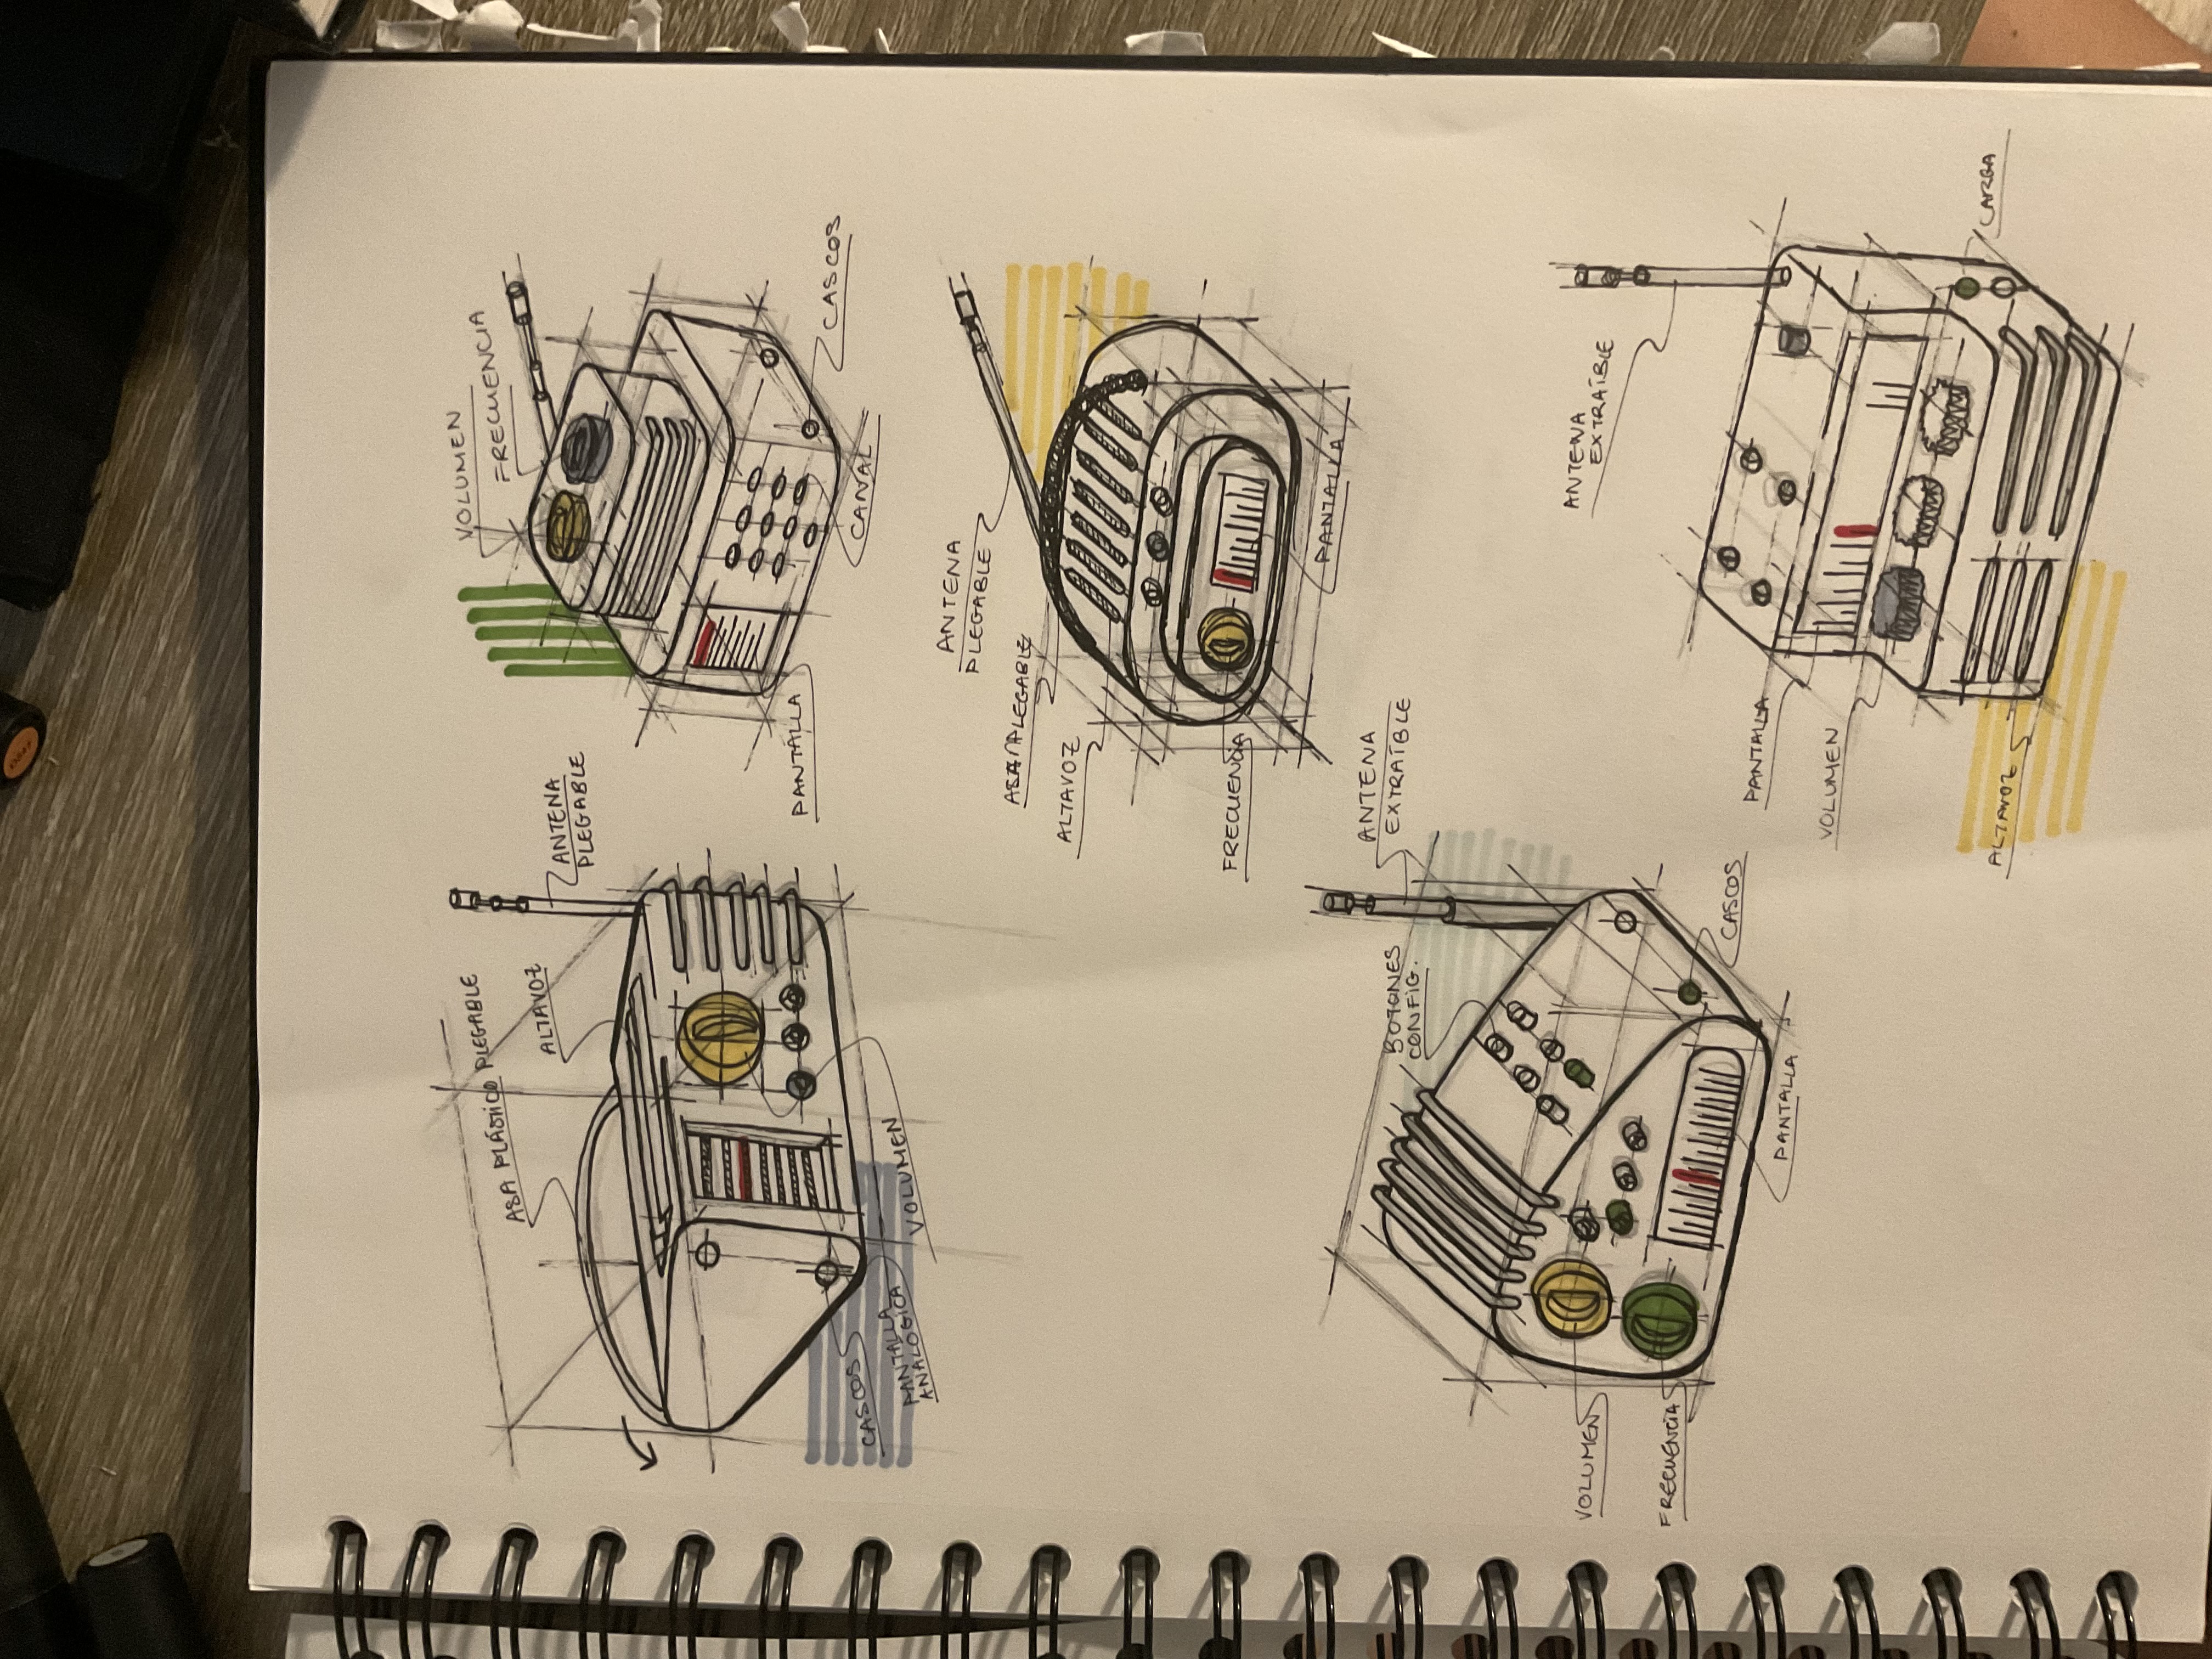 ASA PLÁSTICO PLEGABLE
ALTAVOZ
ANTENA
PLEGABLE
CASCOS
PANTALLA
ANALÓGICA
VOLUMEN
VOLUMEN
FRECUENCIA
PANTALLA
CANAL
CASCOS
ANTENA
PLEGABLE
PLEGABLE
ALTAVOZ
FRECUENCIA
PANTALLA
BOTONES
CONFIG.
ANTENA
EXTRAÍBLE
VOLUMEN
FRECUENCIA
CASCOS
PANTALLA
ANTENA
EXTRAÍBLE
PANTALLA
VOLUMEN
ALTAVOZ
CARGA